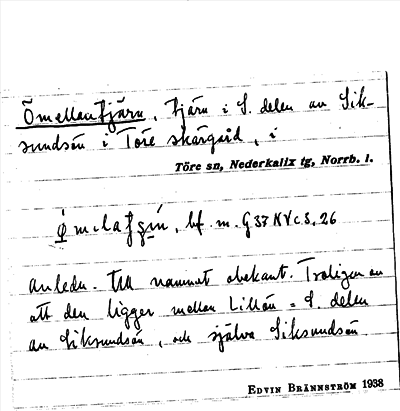 Ömellantjärn, tjärn i S. delen av Sik-
sundsön i Töre skärgård, i
Töre sn, Nederkalix tg, Norrb. l.
bf. m. G 37 NV c. S. 26
Anledn. till namnet obekant. Troligen av
att den ligger mellan Lillön = S. delen
av Siksundsön, och själva Siksundsön.
EDVIN BRÄNNSTRÖM 1938